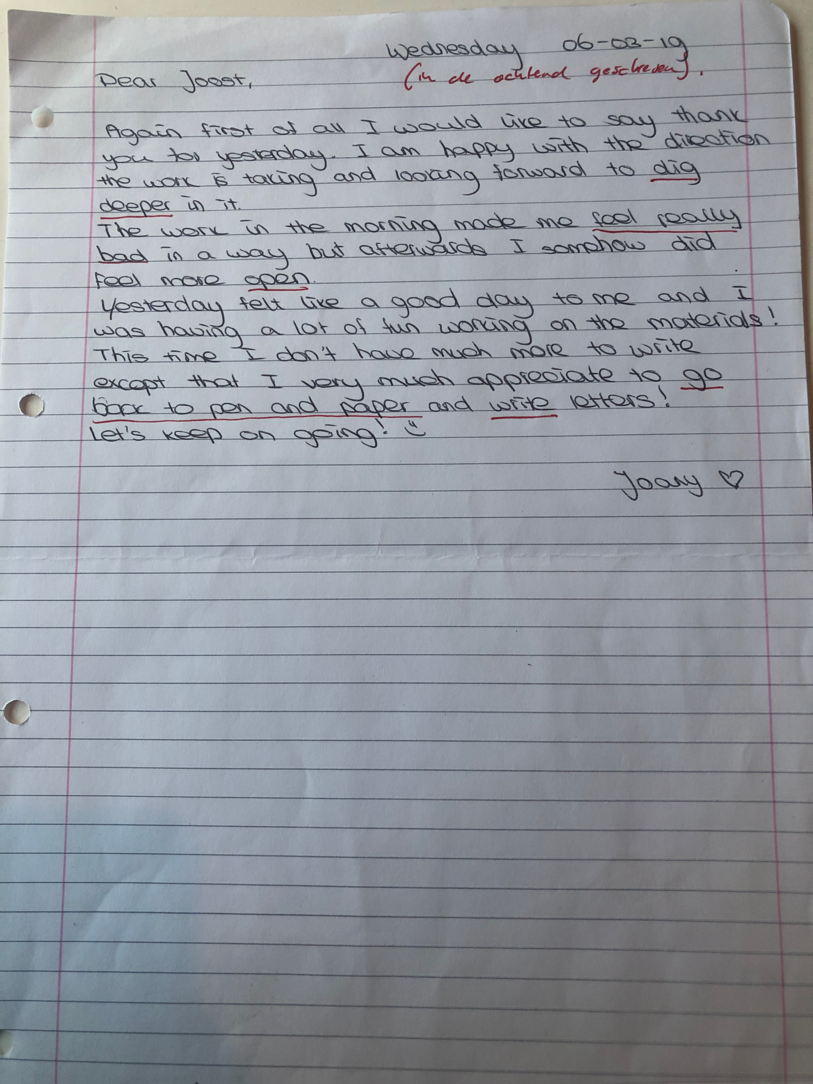 Wednesday 06-03-19
(in de ochtend geschreven).
Dear Joost,
Again first of all I would like to say thank
you for yesterday. I am happy with the direction
the work is taking and looking forward to dig
deeper in it.
The work in the morning made me feel really
bad in a way but afterwards I somehow did
feel more open.
Yesterday felt like a good day to me and I
was having a lot of fun working on the materials!
This time I don't have much more to write
except that I very much appreciate to go
back to pen and paper and write letters!
Let's keep on going! ☺
♡